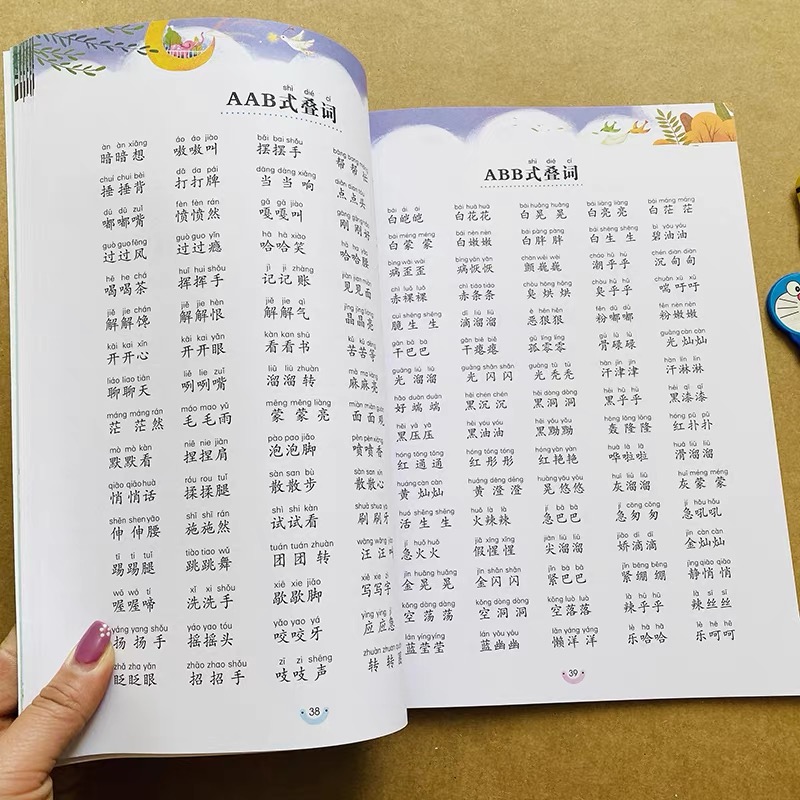 shì dié cí
AAB式叠词
àn àn xiǎng áo áo jiào bǎi bai shǒu bāng bang máng
暗暗想 嗷嗷叫 摆摆手 帮帮忙
chuí chui bèi dǎ da pái dāng dāng xiǎng diǎn dian tóu
捶捶背 打打牌 当当响 点点头
dū dū zuǐ fèn fèn rán gā gā jiào gāng gāng hǎo
嘟嘟嘴 愤愤然 嘎嘎叫 刚刚好
guò guo fēng guò guo yǐn hā hā xiào
过过风 过过瘾 哈哈笑 哈哈
hē he chá huī hui shǒu jì ji zhàng jiàn jian miàn
喝喝茶 挥挥手 记记账 见见面
jiě jie chán jiě jie hèn jiě jie qì
解解馋 解解恨 解解气 晶晶亮
kāi kai xīn kāi kai yǎn kàn kan shū
开开心 开开眼 看看书 苦苦等
liáo liao tiān liě lie zuǐ liū liū zhuàn
聊聊天 咧咧嘴 溜溜转 麻麻亮
máng máng rán máo mao yǔ mēng mēng liàng
茫茫然 毛毛雨 蒙蒙亮 面面
mò mò kàn niē nie jiān pào pao jiǎo
默默看 捏捏肩 泡泡脚 喷喷香
qiāo qiāo huà róu rou tuǐ sàn san bù
悄悄话 揉揉腿 散散步 散散心
shēn shen yāo shī shī rán shì shì kàn
伸伸腰 施施然 试试看 刷刷牙
tī ti tuǐ tiào tiao wǔ tuán tuán zhuàn
踢踢腿 跳跳舞 团团转 汪汪叫
wō wō tí xǐ xi shǒu xiē xie jiǎo
喔喔啼 洗洗手 歇歇脚 写写字
yáng yang shǒu yáo yao tóu yǎo yao yá
扬扬手 摇摇头 咬咬牙 应应急
zhǎ zha yǎn zhāo zhao shǒu zī zī shēng
眨眨眼 招招手 吱吱声 转转
38
shì dié cí
ABB式叠词
bái ái ái bái huā huā bái huǎng huǎng bái liàng liàng bái máng máng
白皑皑 白花花 白晃晃 白亮亮 白茫茫
bái méng méng bái nèn nèn bái pàng pàng bái shēng shēng bì yóu yóu
白蒙蒙 白嫩嫩 白胖胖 白生生 碧油油
bìng wāi wāi bìng yān yān chàn wēi wēi cháo hū hū chén diàn diàn
病歪歪 病恹恹 颤巍巍 潮乎乎 沉甸甸
chì luǒ luǒ chì tiáo tiáo chòu hōng hōng chòu hū hū chuǎn xū xū
赤裸裸 赤条条 臭烘烘 臭乎乎 喘吁吁
cuì shēng shēng dī liū liū è hěn hěn fěn dū dū fěn nèn nèn
脆生生 滴溜溜 恶狠狠 粉嘟嘟 粉嫩嫩
gān bā bā gān biě biě gū líng líng gū lù lù guāng càn càn
干巴巴 干瘪瘪 孤零零 骨碌碌 光灿灿
guāng liū liū guāng shǎn shǎn guāng tū tū hàn jīn jīn hàn lín lín
光溜溜 光闪闪 光秃秃 汗津津 汗淋淋
hǎo duān duān hēi chén chén hēi dòng dòng hēi hū hū hēi qī qī
好端端 黑沉沉 黑洞洞 黑乎乎 黑漆漆
hēi yā yā hēi yóu yóu hēi yǒu yǒu hōng lōng lōng hóng pū pū
黑压压 黑油油 黑黝黝 轰隆隆 红扑扑
hóng tōng tōng hóng tóng tóng hóng yàn yàn huā lā lā huá liū liū
红通通 红彤彤 红艳艳 哗啦啦 滑溜溜
huáng càn càn huáng dèng dèng huàng yōu yōu huī liū liū huī méng méng
黄灿灿 黄澄澄 晃悠悠 灰溜溜 灰蒙蒙
huó shēng shēng huǒ là là jí bā bā jí cōng cōng jí hǒu hǒu
活生生 火辣辣 急巴巴 急匆匆 急吼吼
jí huǒ huǒ jiǎ xīng xīng jiān liū liū jiāo dī dī jīn càn càn
急火火 假惺惺 尖溜溜 娇滴滴 金灿灿
jīn huǎng huǎng jīn shǎn shǎn jǐn bā bā jǐn bēng bēng jìng qiāo qiāo
金晃晃 金闪闪 紧巴巴 紧绷绷 静悄悄
kōng dàng dàng kōng dòng dòng kōng luò luò là hū hū là sī sī
空荡荡 空洞洞 空落落 辣乎乎 辣丝丝
lán yíng yíng lán yōu yōu lǎn yáng yáng lè hā hā lè hē hē
蓝莹莹 蓝幽幽 懒洋洋 乐哈哈 乐呵呵
39